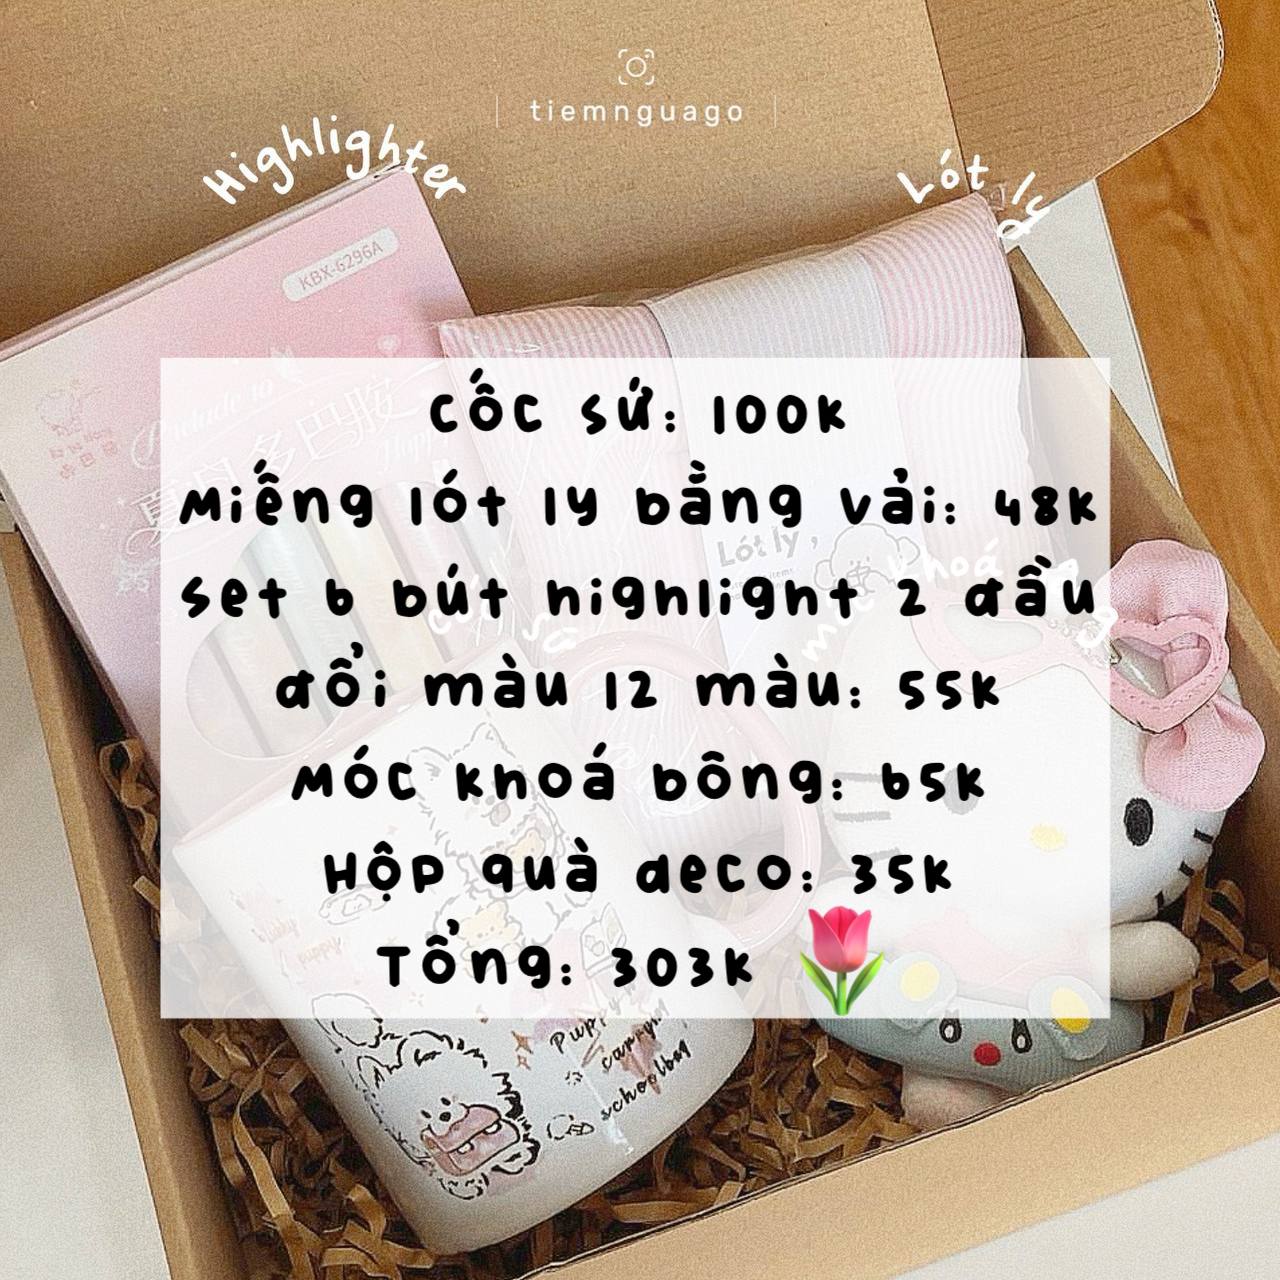 tiemnguago
Highlighter
Lót ly
KBX-G296A
Cốc sứ: 100k
Miếng lót ly bằng vải: 48k
Set 6 bút highlight 2 đầu
đổi màu 12 màu: 55k
Móc khoá bông: 65k
Hộp quà deco: 35k
Tổng: 303k
Lót ly,
móc khoá bông
cốc sứ
puppy
Puppy
carrying
schoolbag